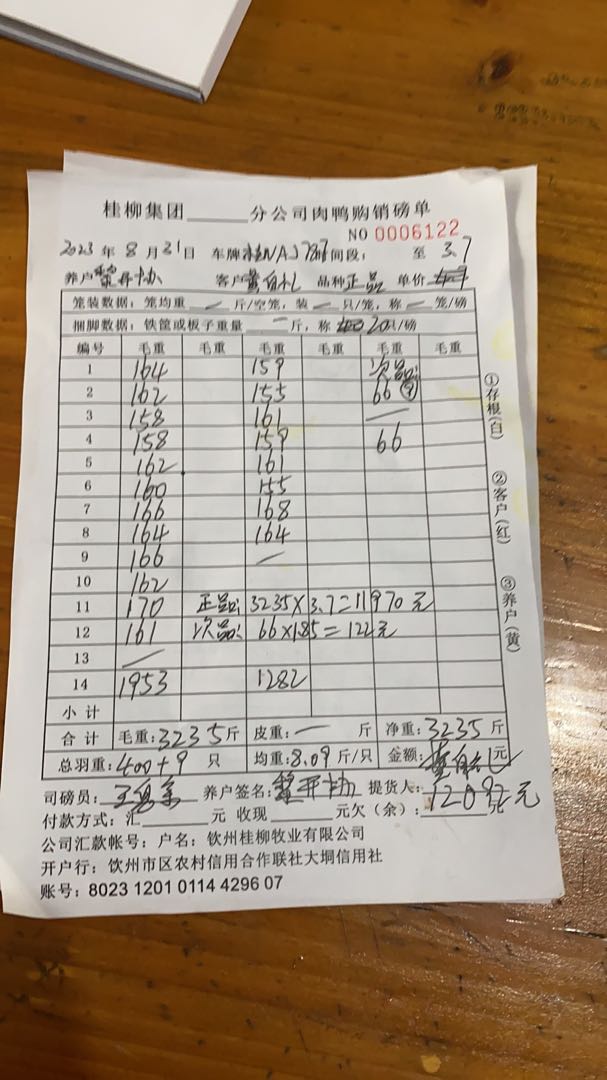 桂柳集团______分公司肉鸭购销磅单
NO 0006122
2023年8月31日 车牌 间段: 至 3.7
养户 客户 品种正品 单价
笼装数据: 笼均重 — 斤/空笼, 装 — 只/笼, 称 — 笼/磅
捆脚数据: 铁筐或板子重量 — 斤, 称 20只/磅
编号 毛重 毛重 毛重 毛重 毛重 毛重
1 164 159 次品:
2 162 155 66 ⑨
3 158 161 —
4 158 159 66
5 162 161
6 160 155
7 166 168
8 164 164
9 166 —
10 162
11 170 正品: 3235×3.7=11970元
12 161 次品: 66×1.85=122元
13 —
14 1953 1282
小计
合计 毛重:3235斤 皮重:— 斤 净重:3235斤
总羽重:400+9 只 均重:8.09斤/只 金额: 元
司磅员: 养户签名: 提货人:
付款方式: 汇______元 收现______元欠(余): 元
公司汇款帐号: 户名: 钦州桂柳牧业有限公司
开户行: 钦州市区农村信用合作联社大垌信用社
账号: 8023 1201 0114 4296 07
①存根(白)
②客户(红)
③养户(黄)